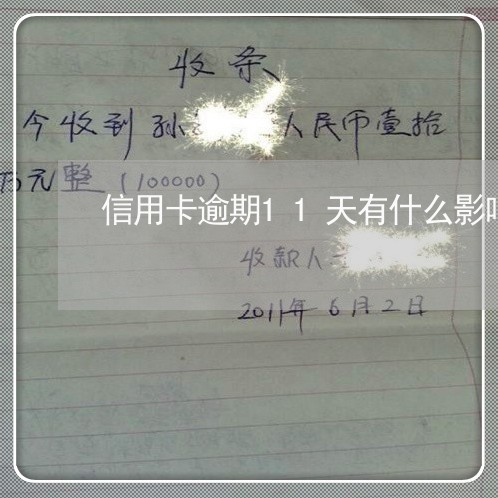 收条
今收到孙 人民币壹拾
万元整（100000）
信用卡逾期11天有什么影
收款人
2011年6月2日